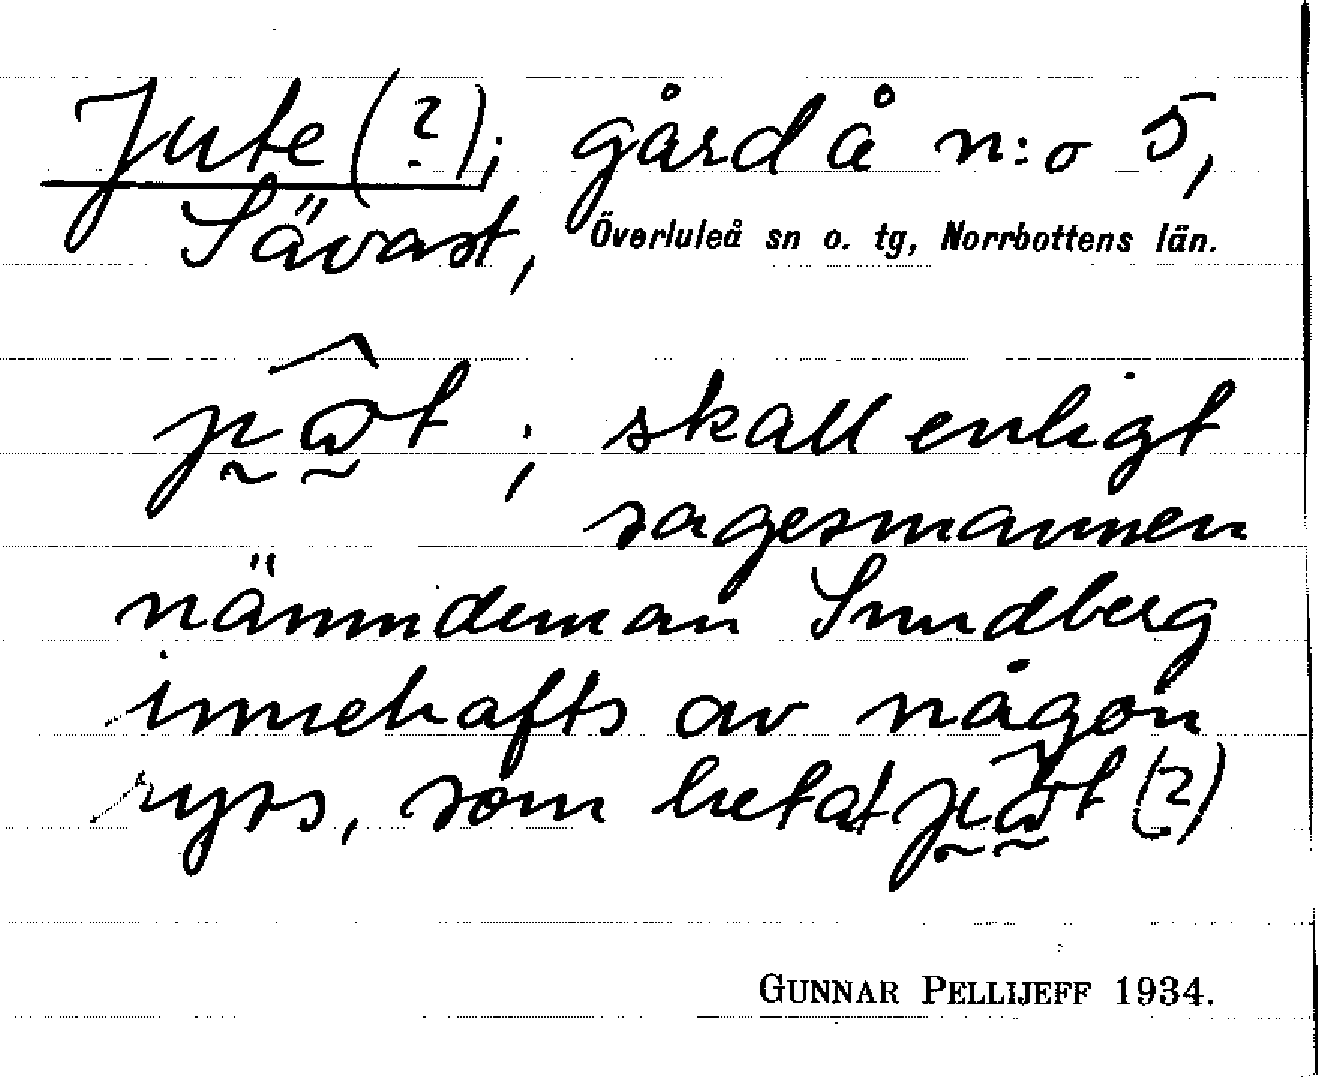 Jute (?); gård å n:o 5,
Sävast, Överluleå sn o. tg, Norrbottens län.
; skall enligt
sagesmannen
nämndeman Sundberg
innehafts av någon
ryss, som hetat (?)
GUNNAR PELLIJEFF 1934.